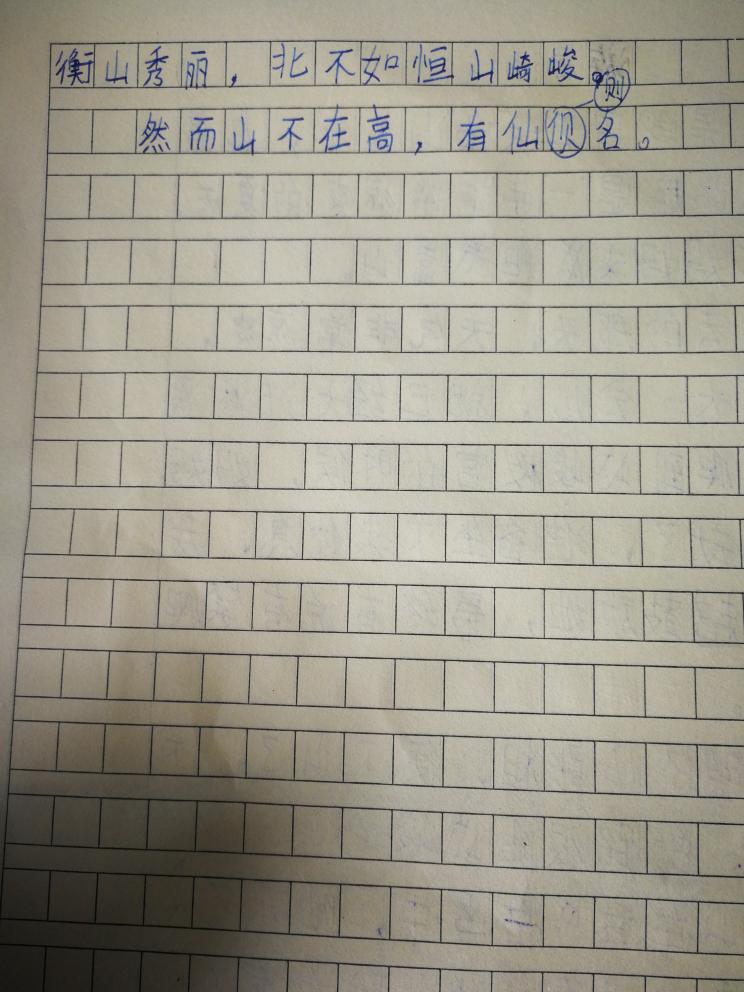 衡山秀丽，北不如恒山崎峻。
则
然而山不在高，有仙则名。